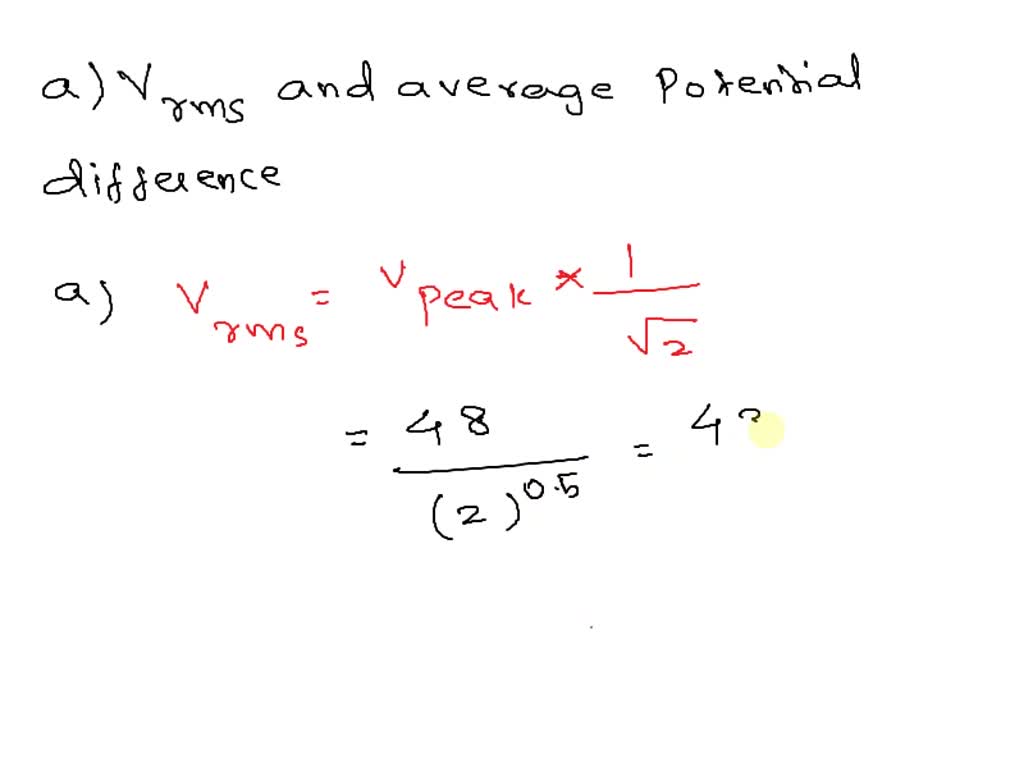 a) Vrms and average Potential
difference
a) Vrms = Vpeak * 1/√2
= 48/(2)^0.5 = 4